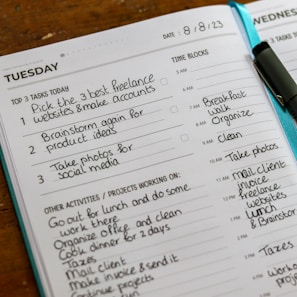 DATE: 8/8/23
TUESDAY
WEDNES
TOP 3 TASKS TODAY
TIME BLOCKS
1 Pick the 3 best freelance
websites & make accounts
2 Brainstorm again for
product ideas
3 Take photos for
social media
5 AM
6 AM
7 AM Breakfast
walk
8 AM Organize
9 AM clean
10 AM Take photos
11 AM mail client
invoice
12 PM freelance
websites
1 PM lunch
2 PM & Brainstor
3 PM Taxes
4 PM Work
proje
OTHER ACTIVITIES / PROJECTS WORKING ON:
Go out for lunch and do some
work there
Organize office and clean
Cook dinner for 2 days
Taxes
Mail client
Make invoice & send it
Continue projects